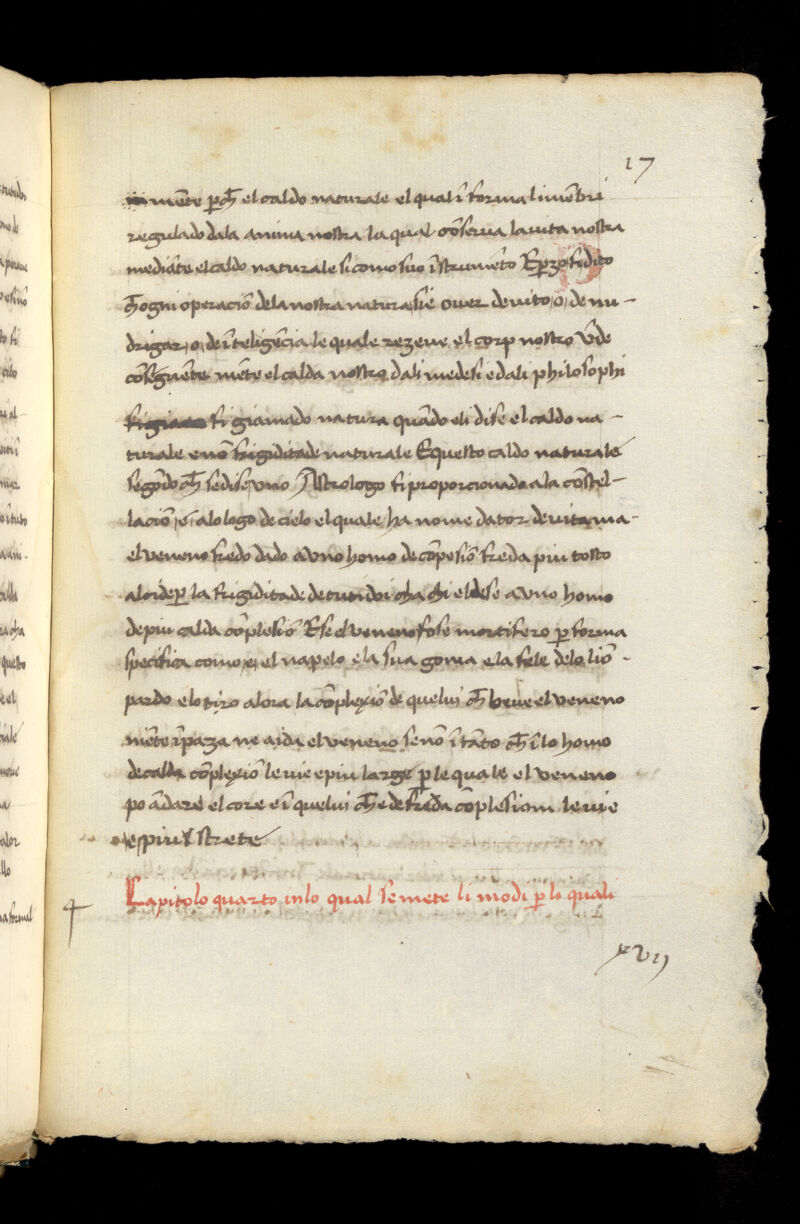 17
mēte ꝑch̄ el caldo naturale el qual ī forma li mēbri
regulado dala anima nostra la qual cōserua la uita nostra
mediāte el caldo naturale si como suo īstrumēto E ꝑzo fi dito
ch̄ ogni operaciō dela nostra natura sie ouer de uito, o, de nu-
drigar, o, de īteligēcia le quale rezeue el corp nostro Vn̄de
cōseguēte mēte el calda nostro dali medesi e dali philosophi
fi giamado natura quādo eli dise el caldo na-
turale e nō frigiditade naturale E questo caldo naturale
segōdo ch̄ se dise, uno Astrologo fi proporcionado ala cōstel-
laciō, e, alo logo de cielo el quale ha nome dator de uita ma-
el veneno fredo dado a vno homo de cōpesiō freda piu tosto
alcide ꝑ la frigiditade de tuti doi cha chi el dese a vno homo
de piu calda cōplesiō E se el veneno fose mortifero ꝑ forma
specifica como, e, el napelo e la sua goma e la fele delo liō-
pardo e lo tiro alora la cōplexiō de quelui ch̄ beue el veneno
mēte īpaza ne aida el veneno se nō ī tāto ch̄ ī lo homo
de calda cōplexiō le uie e piu large ꝑ le quale el veneno
po ādare el core e ī quelui ch̄ e de freda cōplesiom le uie
e, piu strete
Capitolo quarto inlo qual se mete li modi ꝑ lo quali
4
xvij